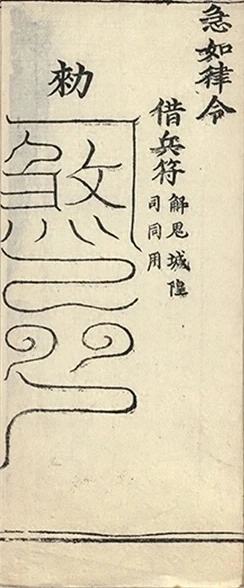 急如律令
借兵符
解鬼城隍
司同用
勅
煞